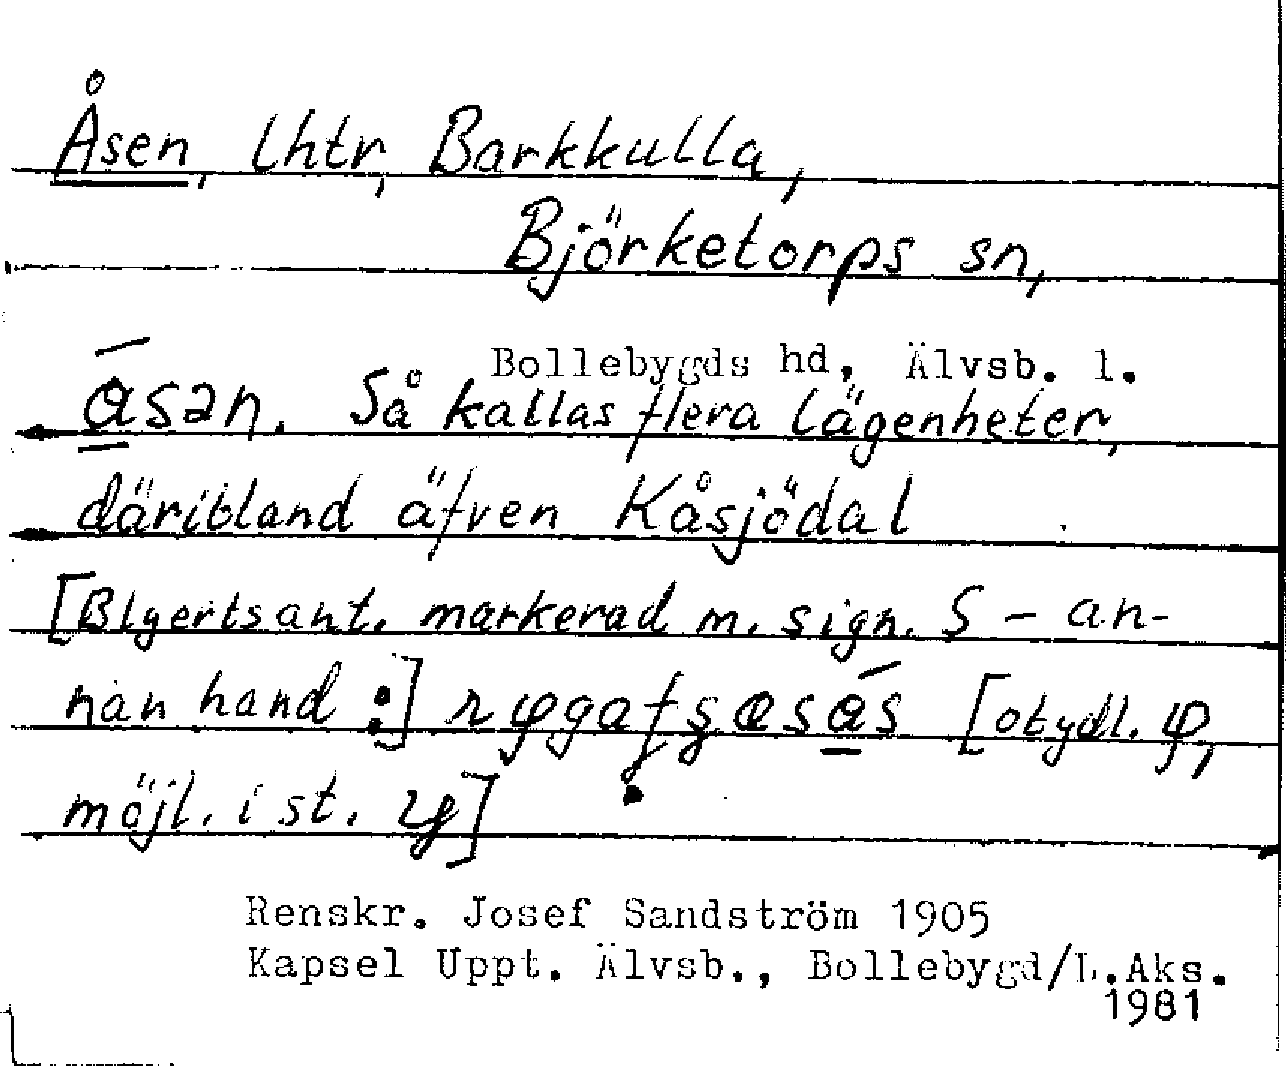 Åsen, lhtr, Barkkulla,
Björketorps sn,
Bollebygds hd, Älvsb. l.
ɑ̲́sən. Så kallas flera lägenheter,
däribland äfven Kåsjödal
[Blyertsant. markerad m. sign. S - an-
nan hand :] [otydl. φ,
möjl. i st. y]
Renskr. Josef Sandström 1905
Kapsel Uppt. Älvsb., Bollebygd/L.Aks.
1981